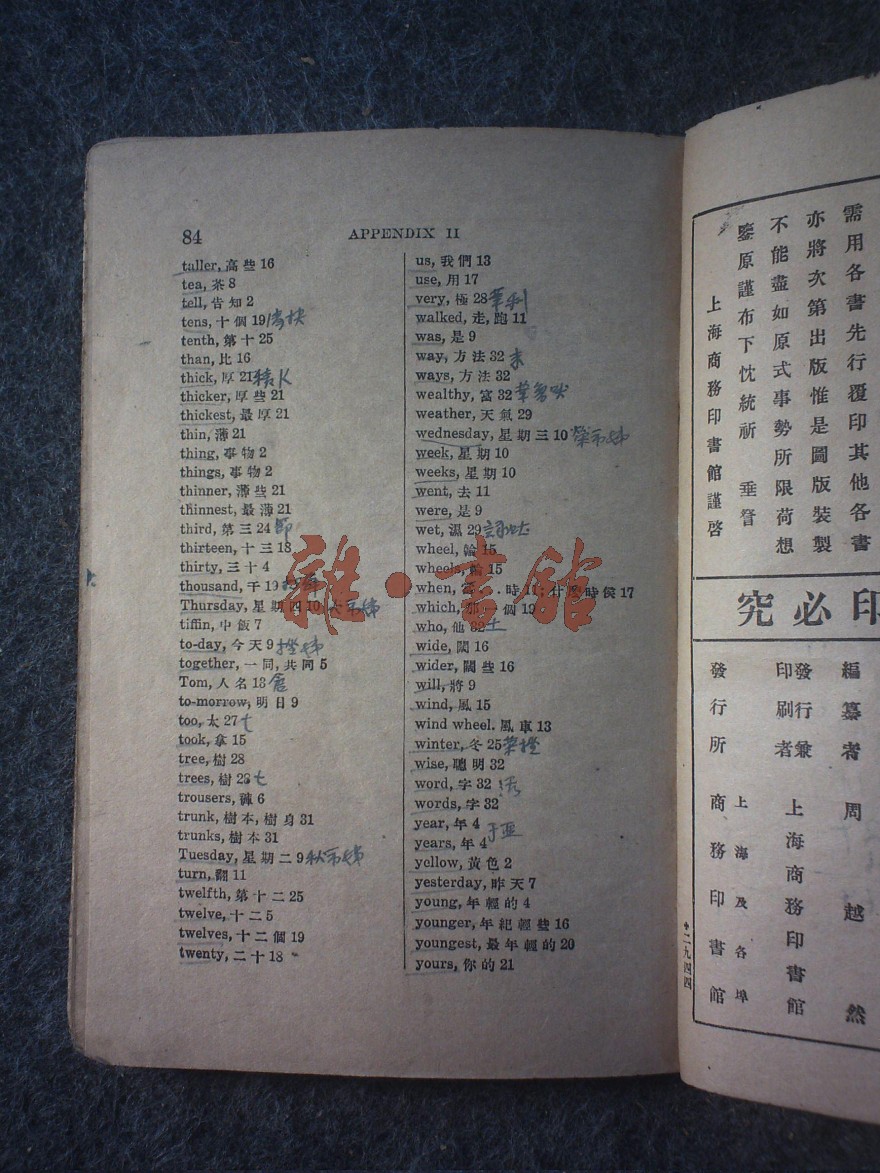 84
APPENDIX II
taller, 高些 16
tea, 茶 8
tell, 告知 2
tens, 十個 19
tenth, 第十 25
than, 比 16
thick, 厚 21
thicker, 厚些 21
thickest, 最厚 21
thin, 薄 21
thing, 事物 2
things, 事物 2
thinner, 薄些 21
thinnest, 最薄 21
third, 第三 24
thirteen, 十三 18
thirty, 三十 4
thousand, 千 19
Thursday, 星期四 10
tiffin, 中飯 7
to-day, 今天 9
together, 一同, 共同 5
Tom, 人名 13
to-morrow, 明日 9
too, 太 27 七
took, 拿 15
tree, 樹 28
trees, 樹 28 七
trousers, 褲 6
trunk, 樹本, 樹身 31
trunks, 樹本 31
Tuesday, 星期二 9
turn, 翻 11
twelfth, 第十二 25
twelve, 十二 5
twelves, 十二個 19
twenty, 二十 18
us, 我們 13
use, 用 17
very, 極 28
walked, 走, 跑 11
was, 是 9
way, 方法 32
ways, 方法 32
wealthy, 富 32
weather, 天氣 29
wednesday, 星期三 10
week, 星期 10
weeks, 星期 10
went, 去 11
were, 是 9
wet, 濕 29
wheel, 輪 15
wheels, 輪 15
when, 當...時 11; 什麼時候 17
which, 那一個 19
who, 他 32
wide, 闊 16
wider, 闊些 16
will, 將 9
wind, 風 15
wind wheel. 風車 13
winter, 冬 25
wise, 聰明 32
word, 字 32
words, 字 32
year, 年 4
years, 年 4
yellow, 黃色 2
yesterday, 昨天 7
young, 年輕的 4
younger, 年紀輕些 16
youngest, 最年輕的 20
yours, 你的 21
雜·書館
需用各書先行覆印其他各書
亦將次第出版惟是圖版裝製
不能盡如原式事勢所限荷想
鑒原謹布下忱統祈 垂詧
上海商務印書館謹啓
印必究
編纂者 周越然
發行兼印刷者 上海商務印書館
發行所 上海及各埠 商務印書館
二九四四